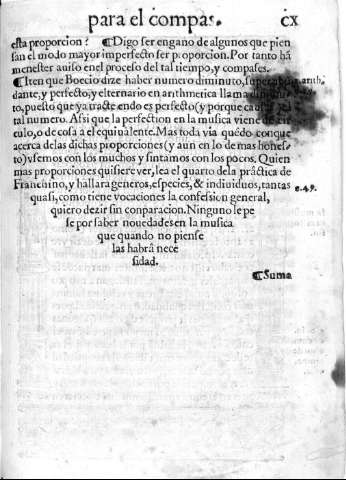 para el compas. cx
esta proporcion? ¶Digo ser engaño de algunos que pien
san el modo mayor imperfecto ser proporcion. Por tanto hã
menester auiso enel proceso del tal tiempo, y compases.
¶Iten que Boecio dize haber numero diminuto, arith.
dante, y perfecto, y elternario en arithmetica llama
to, puesto que ya tracte endo es perfecto (y porque
tal numero. Afsi que la perfection en la musica viene de cir
culo, o de cosa a el equiualente. Mas toda via quedo conque
acerca delas dichas proporciones (y aun en lo de mas hones
to) vsemos con los muchos y sintamos con los pocos. Quien
mas proporciones quisiere ver, lea el quarto dela práctica de
Franchino, y hallara generos, especies, & indiuiduos, tantas e.49.
quasi, como tiene vocaciones la confesion general,
quiero dezir sin conparacion. Ninguno le pe
se por saber nouedades en la musica
que quando no piense
las habrâ nece
sidad.
¶Suma